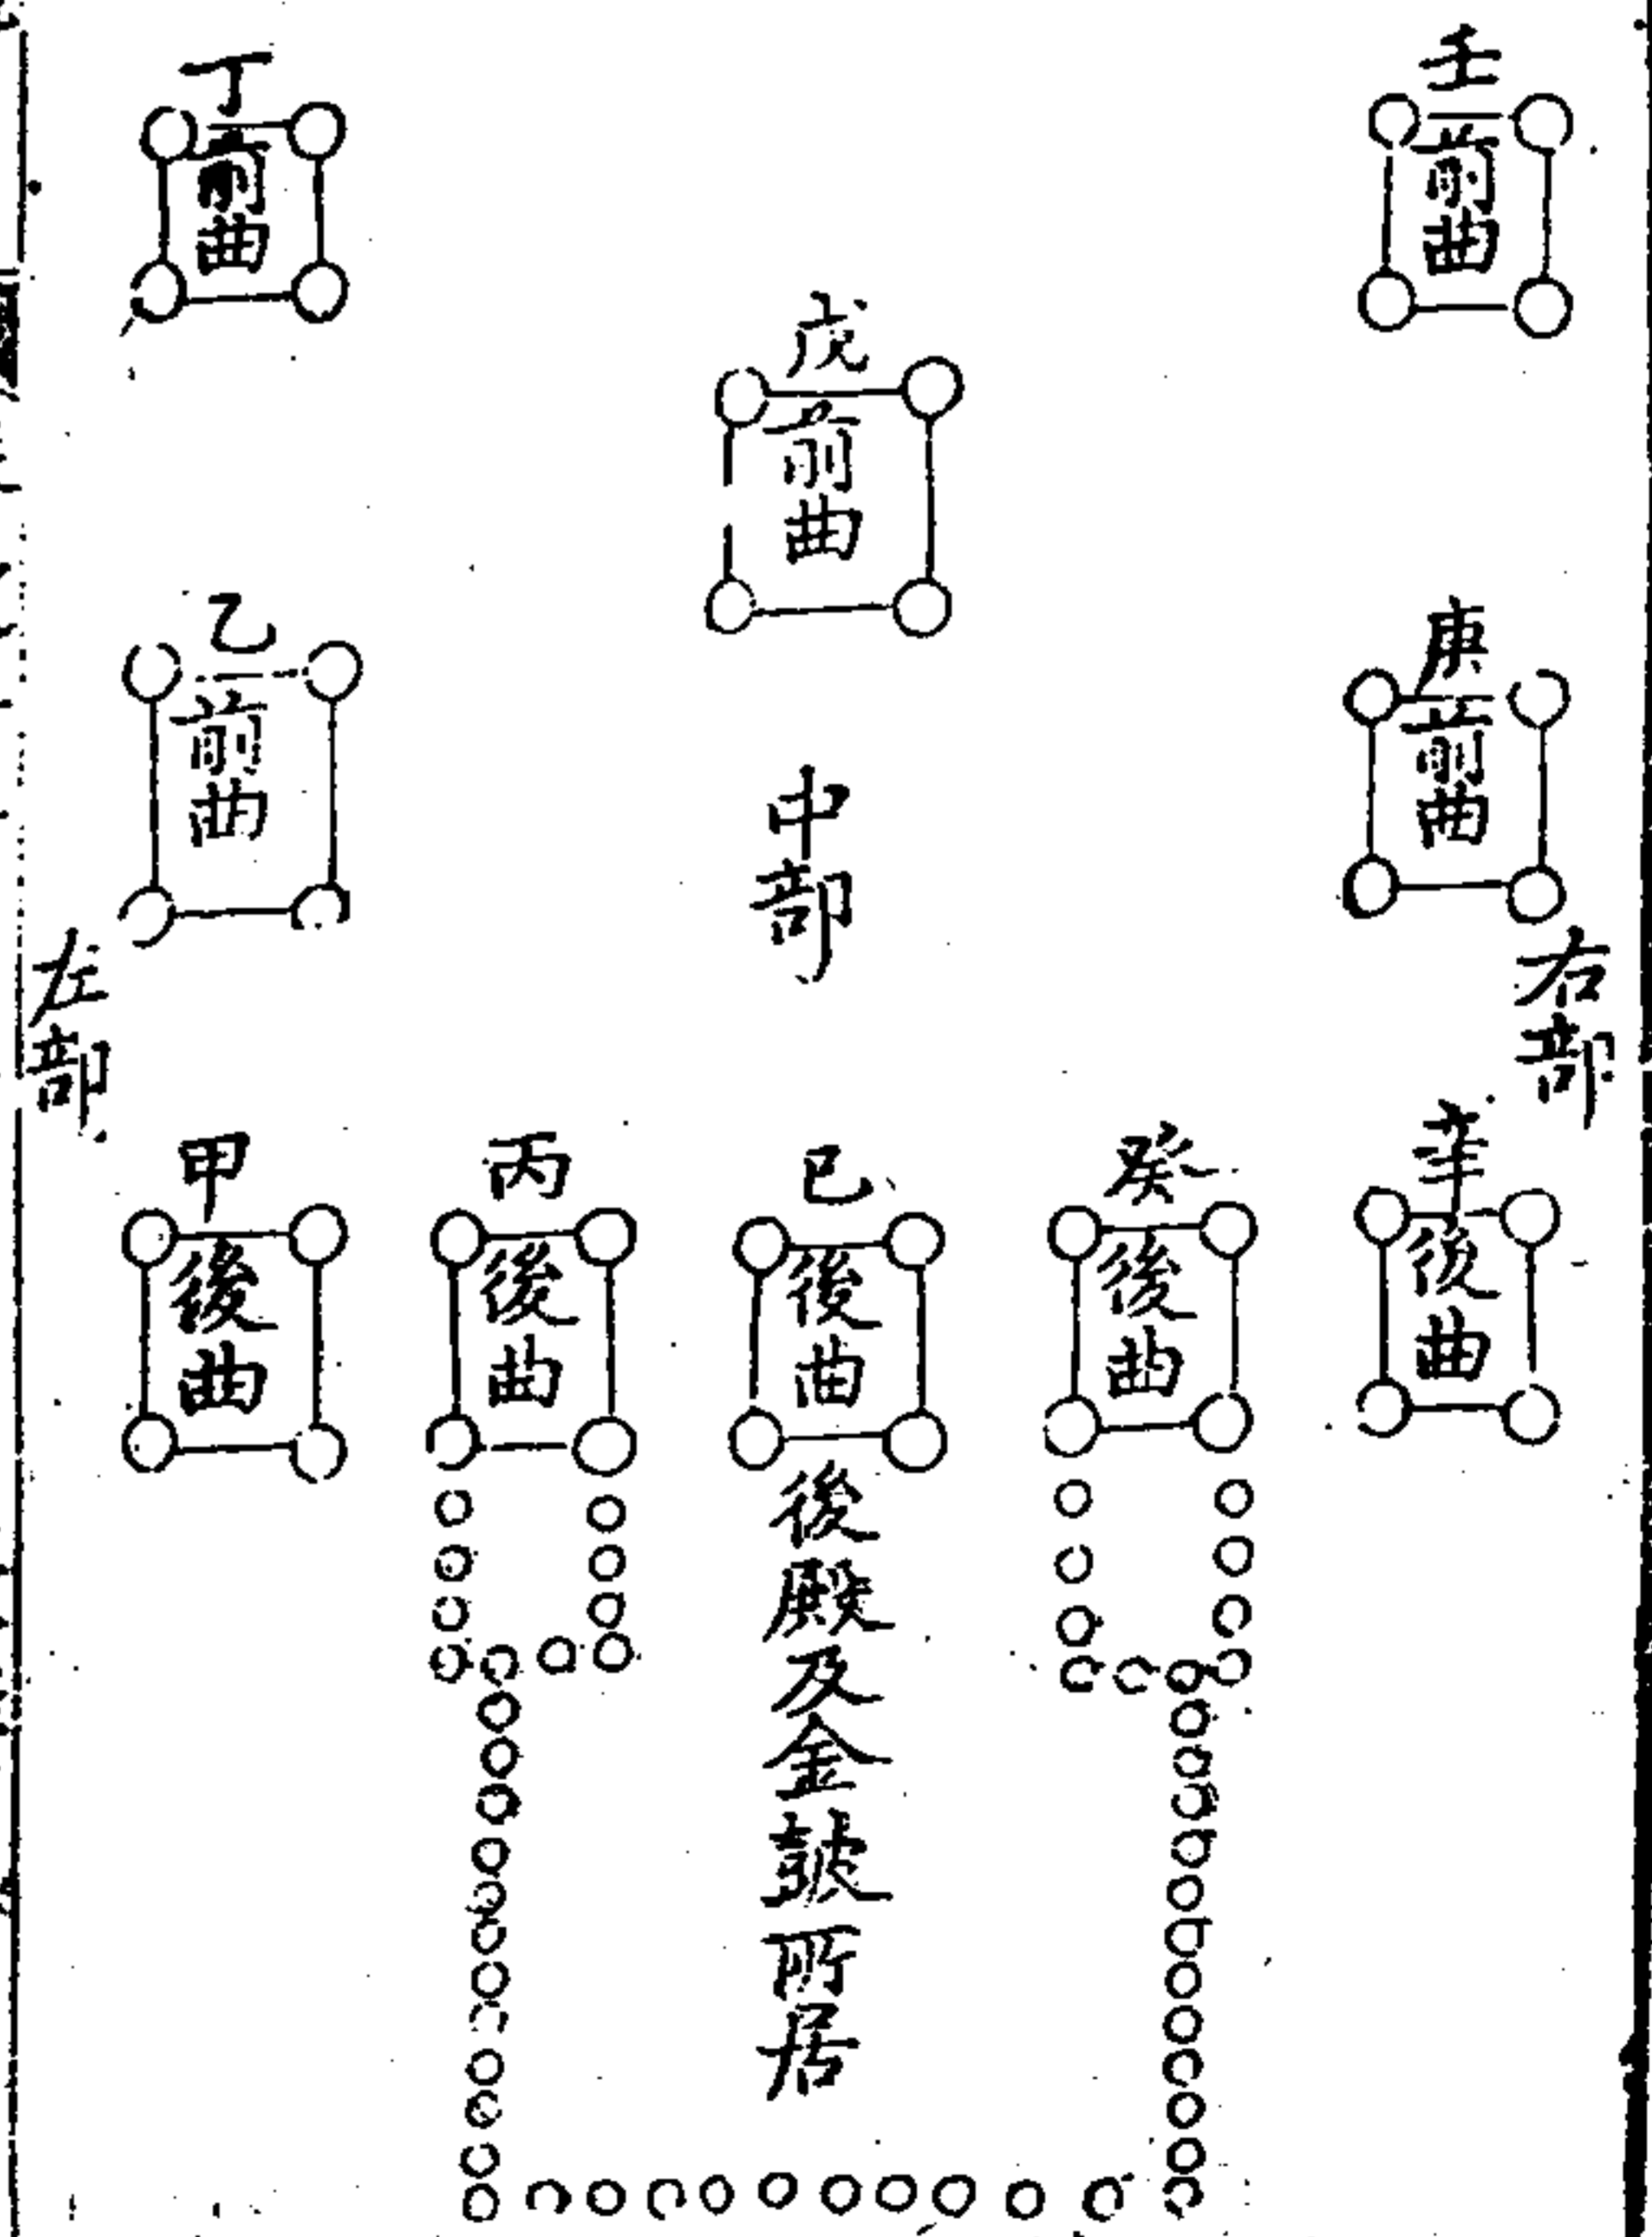 壬
前曲
庚
前曲
右部
辛
後曲
癸
後曲
戊
前曲
中部
己
後曲
後殿及金鼓所居
丙
後曲
丁
前曲
乙
前曲
左部
甲
後曲